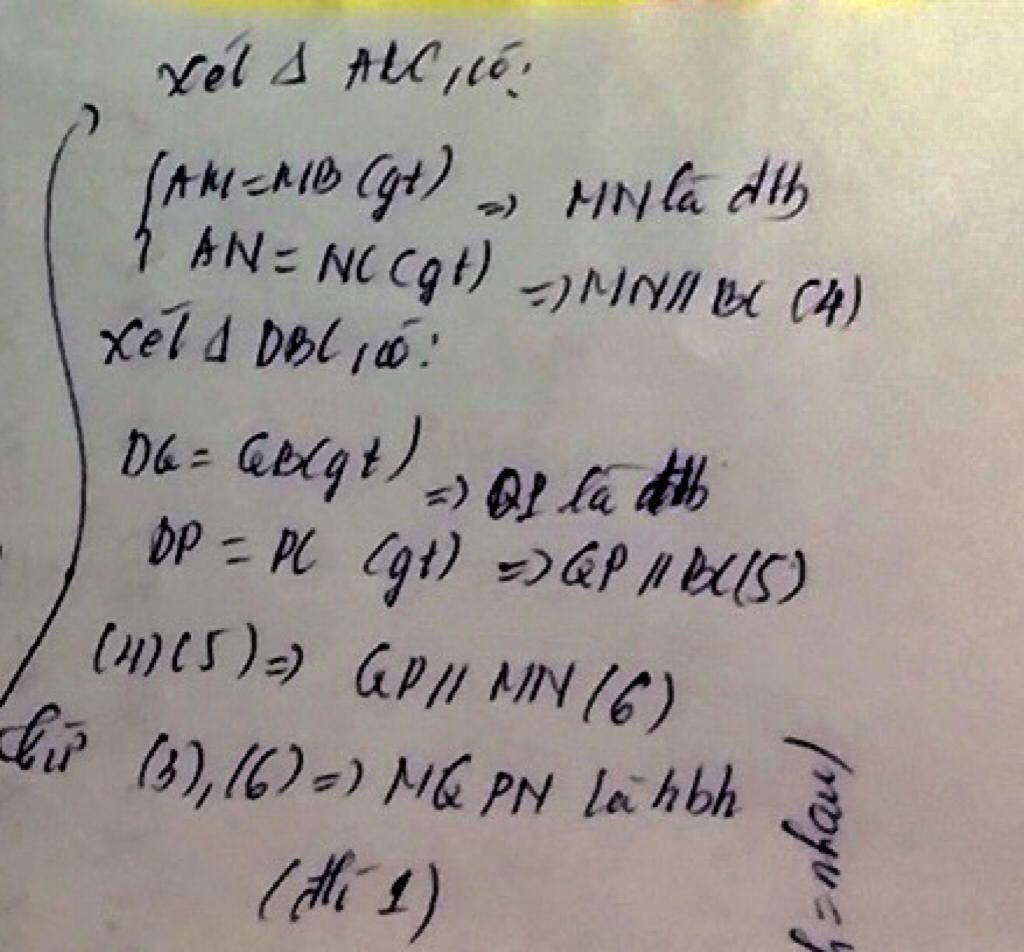 Xét Δ ABC, có:
{AM = MB (gt) => MN là đtb
AN = NC (gt) => MN // BC (4)
Xét Δ DBC, có:
DQ = QB (gt) => QP là đtb
DP = PC (gt) => QP // BC (5)
(4)(5) => QP // MN (6)
từ (3), (6) => MQPN là hbh
(dh 1)
= nhau)